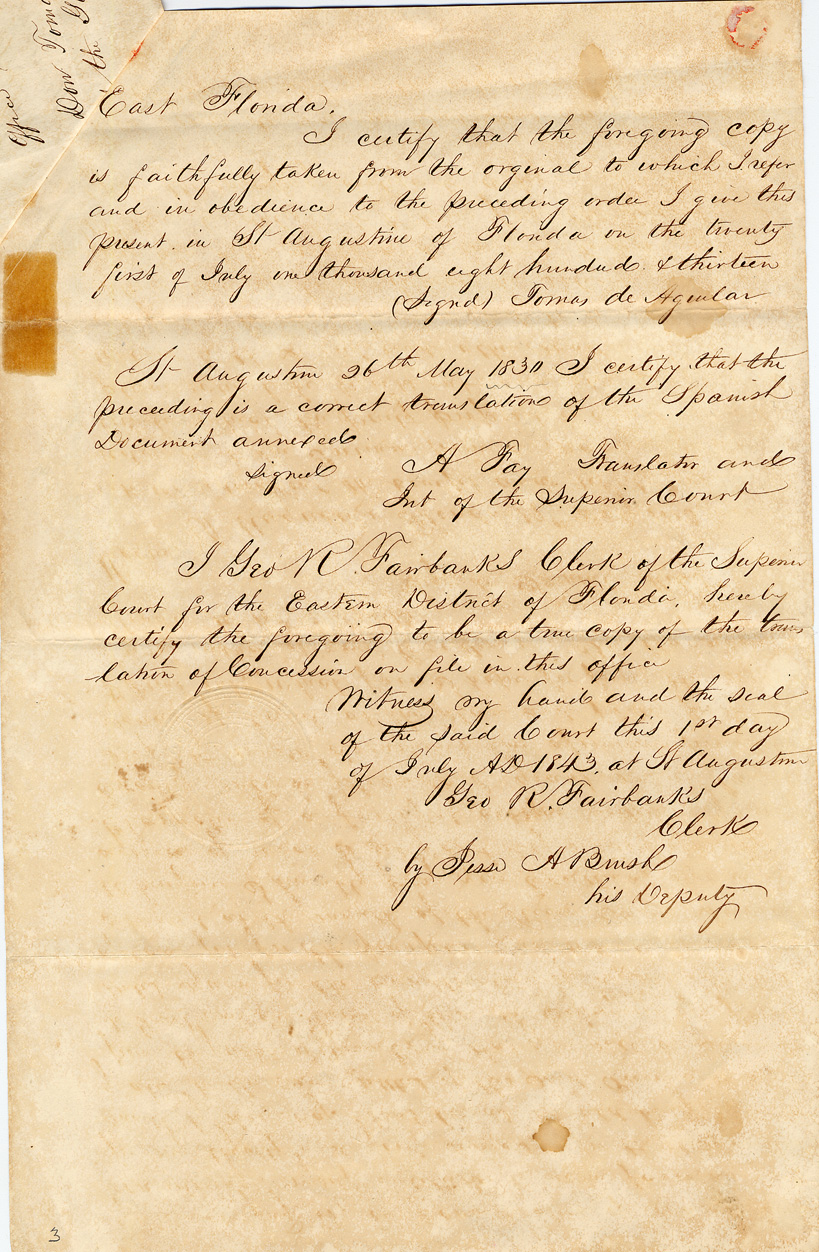 office
Don Toma
the G
East Florida.
I certify that the foregoing copy
is faithfully taken from the orginal to which I refer
and in obedience to the preceding order I give this
present in St Augustine of Florida on the twenty
first of July one thousand eight hundred & thirteen
(Signd) Tomas de Aguilar
St Augustine 26th May 1830 I certify that the
preceeding is a correct translation of the Spanish
Document annexed
signed A Fay Translator and
Int of the Superior Court
I Geo R. Fairbanks Clerk of the Superior
Court for the Eastern District of Florida, hereby
certify the foregoing to be a true copy of the trans
lation of Concession on file in this office
Witness my hand and the seal
of the said Court this 1st day
of July AD 1843. at St Augustine
Geo R. Fairbanks
Clerk
by Jesse A Brush
his Deputy
3